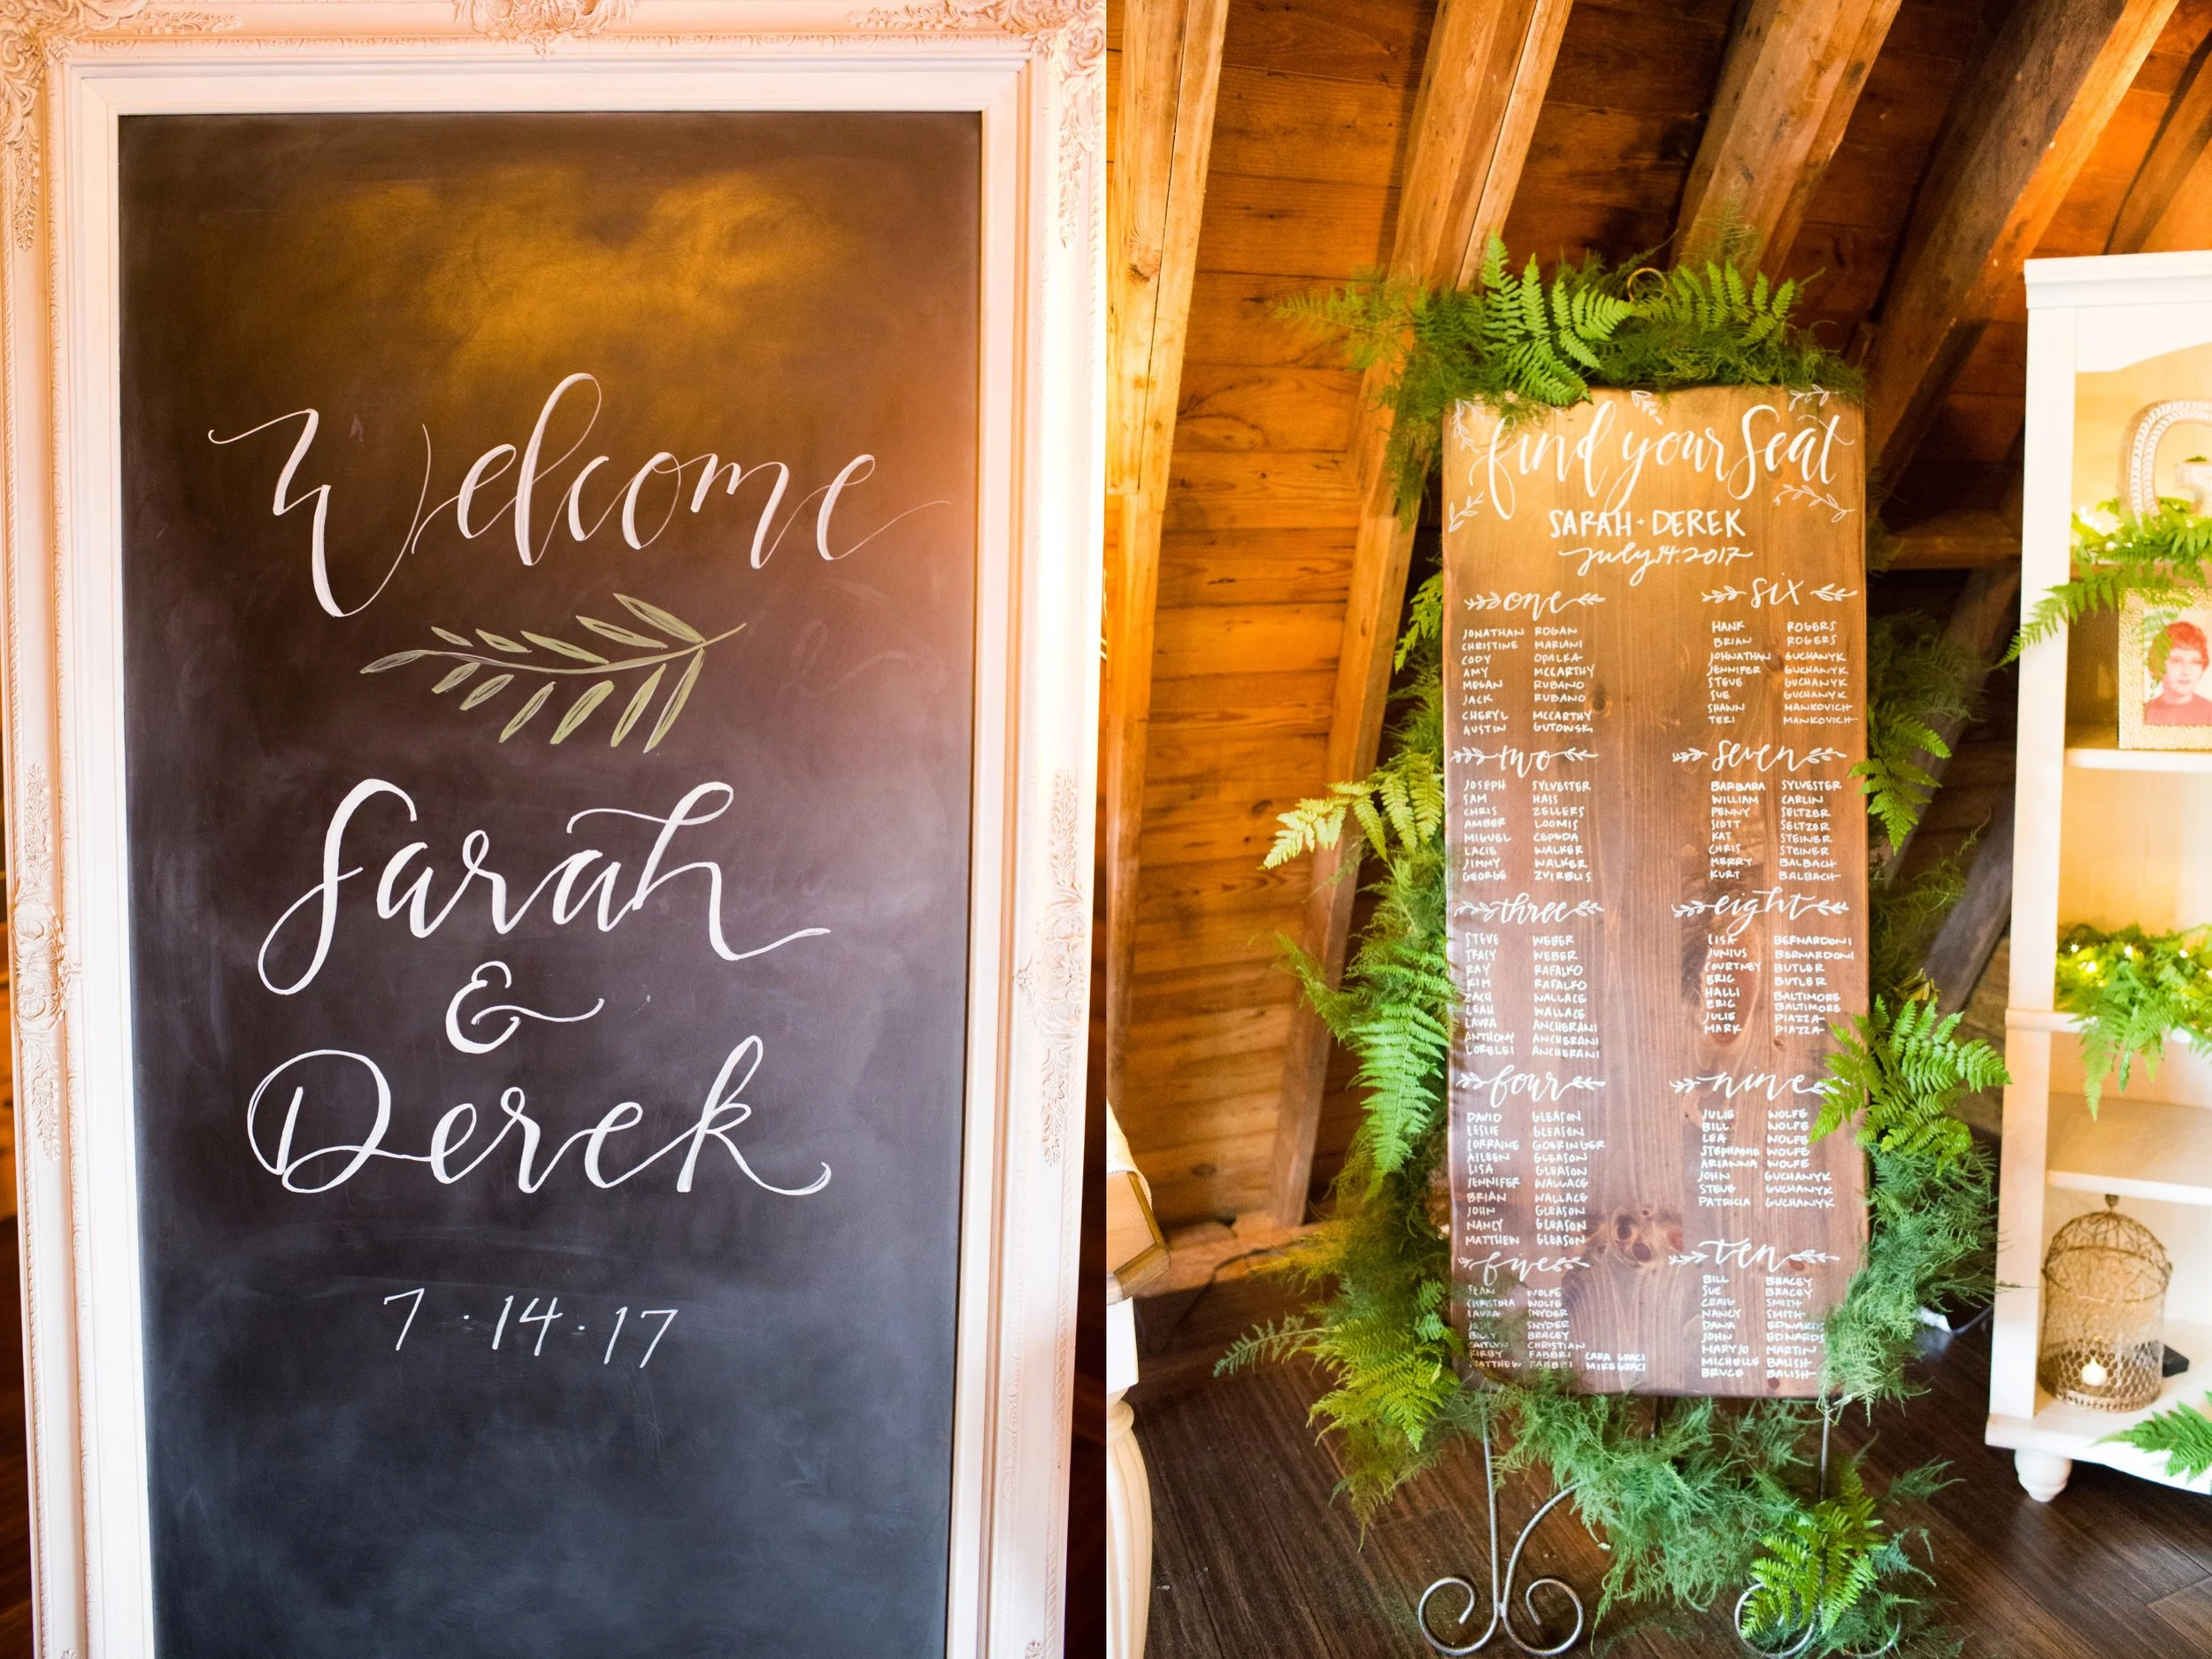 Welcome
Sarah
&
Derek
7 · 14 · 17
find your seat
SARAH · DEREK
July 14. 2017
one
JONATHAN ROGAN
CHRISTINE MARIANI
CODY OPALKA
AMY MCCARTHY
MEGAN RUBANO
JACK RUBANO
CHERYL MCCARTHY
AUSTIN GUTOWSKI
two
JOSEPH SYLVESTER
SAM HAIS
CHRIS ZELLERS
AMBER LOOMIS
MIGUEL CEPEDA
LACIE WALKER
JIMMY WALKER
GEORGE ZVIRBLIS
three
STEVE WEBER
TRACY WEBER
RAY RAFALKO
KIM RAFALKO
ZACH WALLACE
LEAH WALLACE
LAURA ANCHERANI
ANTHONY ANCHERANI
LORELEI ANCHERANI
four
DAVID GLEASON
LESLIE GLEASON
LORRAINE GOERINGER
AILEEN GLEASON
LISA GLEASON
JENNIFER WALLACE
BRIAN WALLACE
JOHN GLEASON
NANCY GLEASON
MATTHEW GLEASON
five
SEAN WOLFE
CHRISTINA WOLFE
LAURA
JOSE SNYDER
BILLY BRACEY
CAITLYN CHRISTIAN
KIRBY FABBRI CARA GRACI
MATTHEW FABBRI MIKE GRACI
six
HANK ROGERS
BRIAN ROGERS
JOHNATHAN GUCHANYK
JENNIFER GUCHANYK
STEVE GUCHANYK
SUE GUCHANYK
SHAWN MANKOVICH
TERI MANKOVICH
seven
BARBARA SYLVESTER
WILLIAM CARLIN
PENNY SELTZER
SCOTT SELTZER
KAT STEINER
CHRIS STEINER
MERRY BALBACH
KURT BALBACH
eight
LISA BERNARDONI
JUNIUS BERNARDONI
COURTNEY BUTLER
ERIC BUTLER
HALLI BALTIMORE
ERIC BALTIMORE
JULIE PIAZZA
MARK PIAZZA
nine
JULIE WOLFE
BILL WOLFE
LEA WOLFE
STEPHANIE WOLFE
ARIANNA WOLFE
JOHN GUCHANYK
STEVE GUCHANYK
PATRICIA GUCHANYK
ten
BILL BRACEY
SUE BRACEY
CRAIG SMITH
NANCY SMITH
DANA EDWARDS
JOHN EDWARDS
MARYJO MARTIN
MICHELLE BALISH
BRUCE BALISH